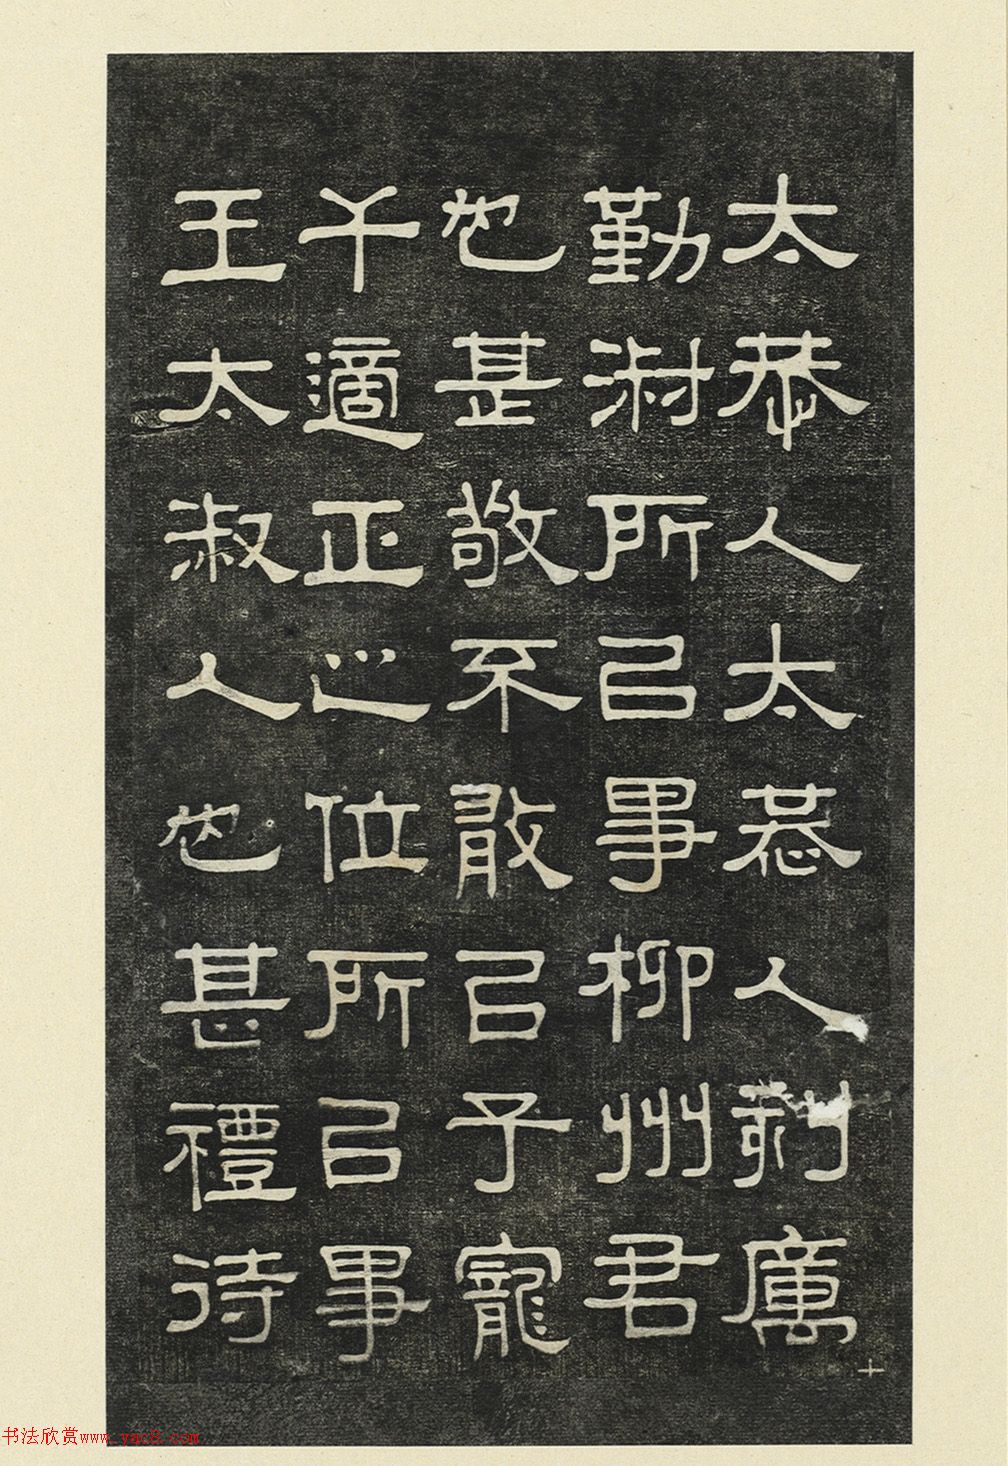 太恭人太恭人刻厲
勤淑所㠯事柳州君
也甚敬不敢㠯子寵
干適正之位所㠯事
王太淑人也甚禮待
十
书法欣赏www.yac8.com